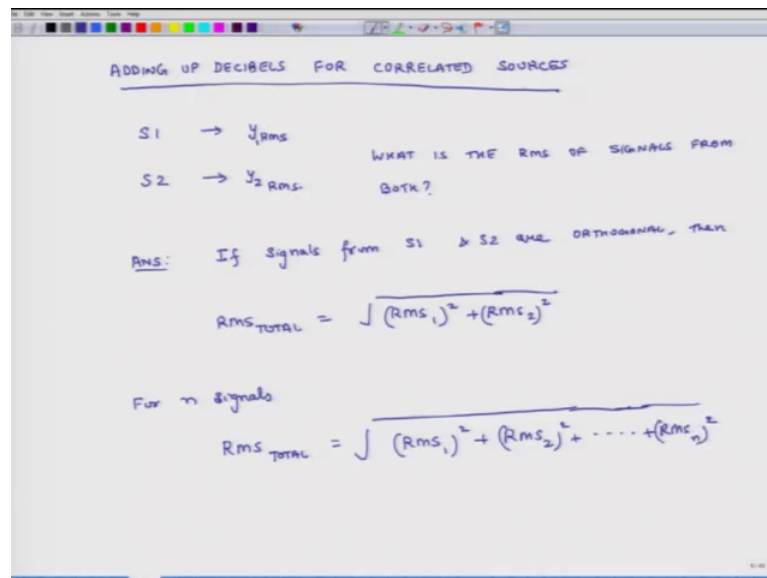 ADDING UP DECIBELS FOR CORRELATED SOURCES
S1 → y₁Rms
S2 → y₂ Rms. WHAT IS THE Rms OF SIGNALS FROM
BOTH?
ANS: If signals from S1 & S2 are ORTHOGONAL, then
Rms TOTAL = √(Rms₁)² + (Rms₂)²
For n signals
Rms TOTAL = √(Rms₁)² + (Rms₂)² + ..... + (Rmsₙ)²